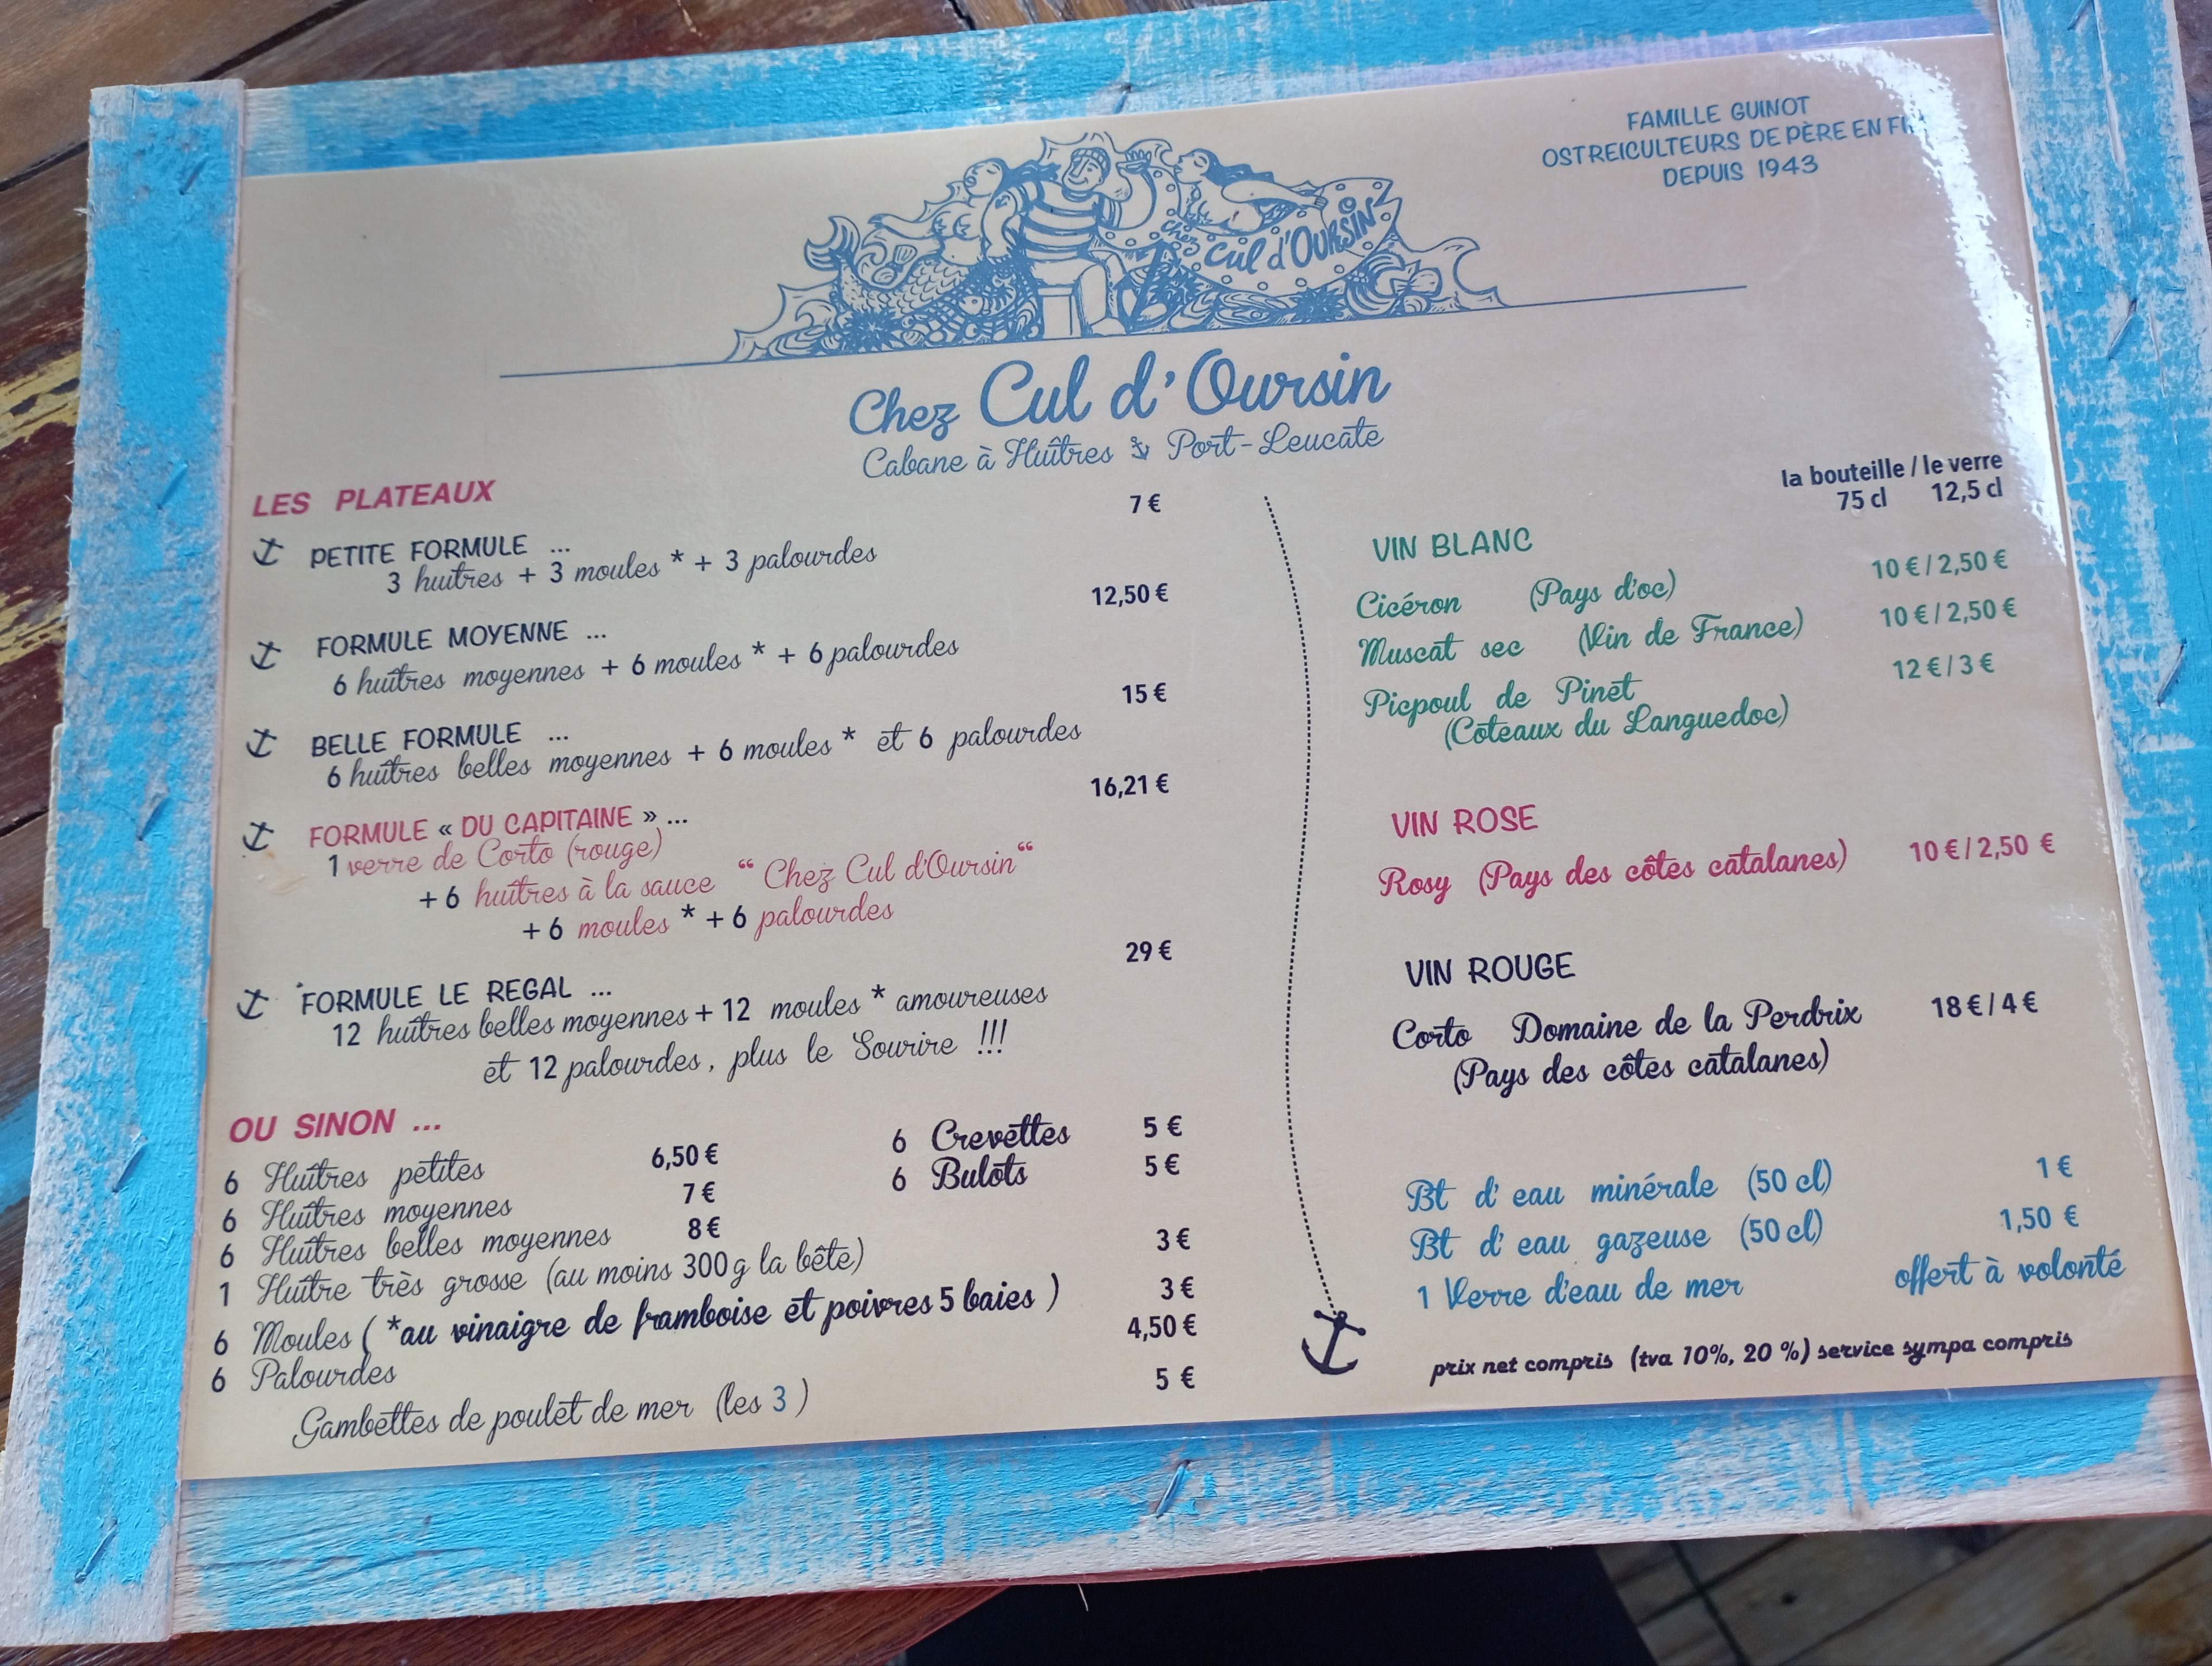 FAMILLE GUINOT
OSTREICULTEURS DE PÈRE EN
DEPUIS 1943
Chez Cul d'OURSIN
Chez Cul d'Oursin
Cabane à Huîtres Port-Leucate
LES PLATEAUX
PETITE FORMULE ... 7 €
3 huitres + 3 moules * + 3 palourdes
FORMULE MOYENNE ... 12,50 €
6 huîtres moyennes + 6 moules * + 6 palourdes
BELLE FORMULE ... 15 €
6 huîtres belles moyennes + 6 moules * et 6 palourdes
FORMULE « DU CAPITAINE » ... 16,21 €
1 verre de Corto (rouge)
+ 6 huîtres à la sauce “ Chez Cul d'Oursin“
+ 6 moules * + 6 palourdes
FORMULE LE REGAL ... 29 €
12 huîtres belles moyennes + 12 moules * amoureuses
et 12 palourdes, plus le Sourire !!!
OU SINON ...
6 Huîtres petites 6,50 €
6 Huîtres moyennes 7 €
6 Huîtres belles moyennes 8 €
6 Crevettes 5 €
6 Bulots 5 €
1 Huître très grosse (au moins 300 g la bête) 3 €
6 Moules ( *au vinaigre de framboise et poivres 5 baies ) 3 €
6 Palourdes 4,50 €
Gambettes de poulet de mer (les 3 ) 5 €
la bouteille / le verre
75 cl 12,5 cl
VIN BLANC
Cicéron (Pays d'oc) 10 € / 2,50 €
Muscat sec (Vin de France) 10 € / 2,50 €
Picpoul de Pinet 12 € / 3 €
(Coteaux du Languedoc)
VIN ROSE
Rosy (Pays des côtes catalanes) 10 € / 2,50 €
VIN ROUGE
Corto Domaine de la Perdrix 18 € / 4 €
(Pays des côtes catalanes)
Bt d' eau minérale (50 cl) 1 €
Bt d' eau gazeuse (50 cl) 1,50 €
1 Verre d'eau de mer offert à volonté
prix net compris (tva 10%, 20 %) service sympa compris